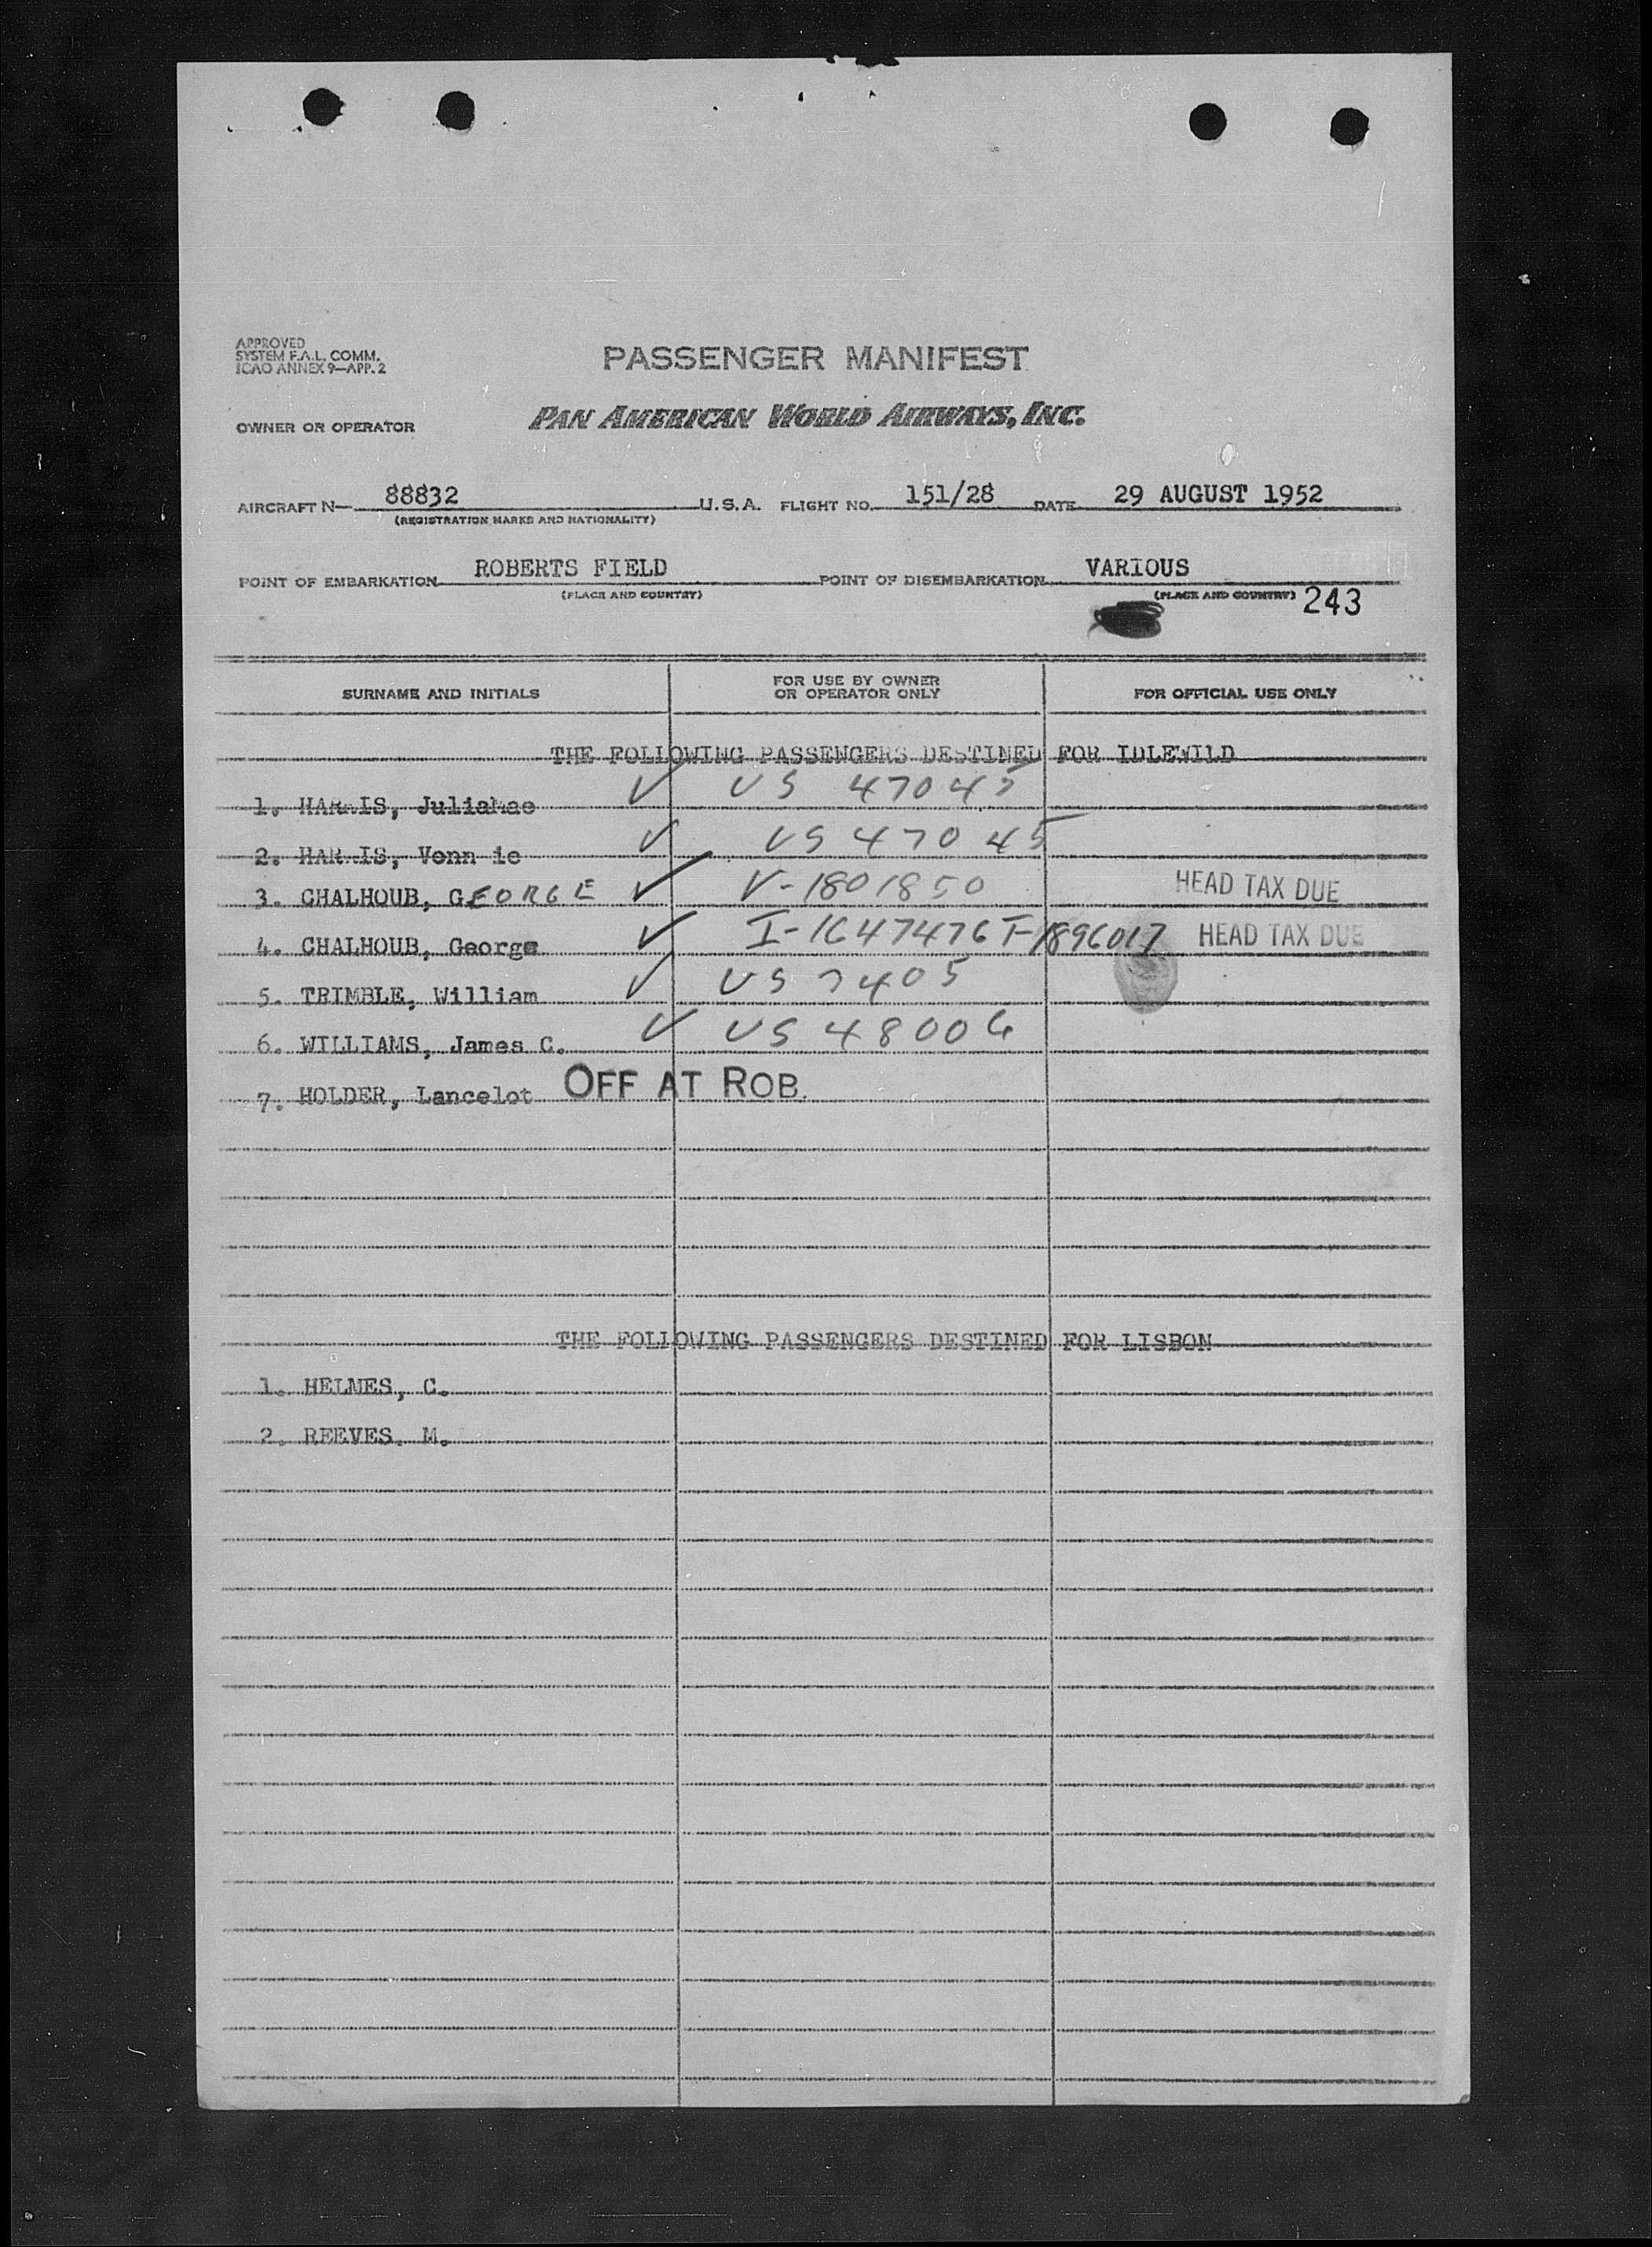 APPROVED
SYSTEM F.A.L. COMM.
ICAO ANNEX 9—APP. 2
PASSENGER MANIFEST
OWNER OR OPERATOR PAN AMERICAN WORLD AIRWAYS, INC.
AIRCRAFT N— 88832 U.S.A. FLIGHT NO. 151/28 DATE 29 AUGUST 1952
(REGISTRATION MARKS AND NATIONALITY)
POINT OF EMBARKATION ROBERTS FIELD POINT OF DISEMBARKATION VARIOUS
(PLACE AND COUNTRY) (PLACE AND COUNTRY) 243
SURNAME AND INITIALS FOR USE BY OWNER OR OPERATOR ONLY FOR OFFICIAL USE ONLY
THE FOLLOWING PASSENGERS DESTINED FOR IDLEWILD
1. HARRIS, JuliaMae ✓ US 47045
2. HARRIS, Vonn ie ✓ US 47045
3. CHALHOUB, GEORGE ✓ V-1801850 HEAD TAX DUE
4. CHALHOUB, George ✓ I-1647476 T-1896017 HEAD TAX DUE
5. TRIMBLE, William ✓ US 7405
6. WILLIAMS, James C. ✓ US 48006
7. HOLDER, Lancelot OFF AT ROB.
THE FOLLOWING PASSENGERS DESTINED FOR LISBON
1. HELMES, C.
2. REEVES, M.